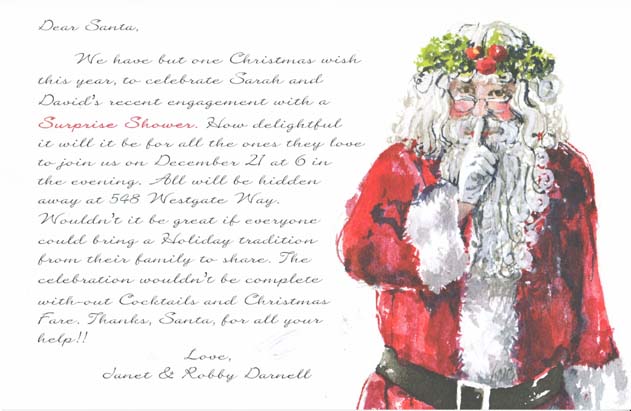 Dear Santa,
We have but one Christmas wish
this year, to celebrate Sarah and
David's recent engagement with a
Surprise Shower. How delightful
it will it be for all the ones they love
to join us on December 21 at 6 in
the evening. All will be hidden
away at 548 Westgate Way.
Wouldn't it be great if everyone
could bring a Holiday tradition
from their family to share. The
celebration wouldn't be complete
with-out Cocktails and Christmas
Fare. Thanks, Santa, for all your
help!!
Love,
Janet & Robby Darnell